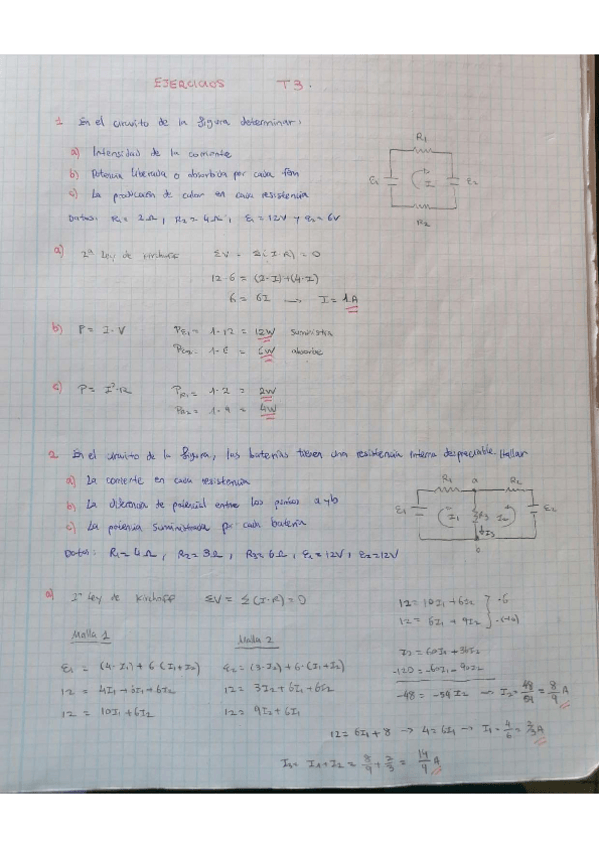 EJERCICIOS T3.
1 En el circuito de la figura determinar:
a) Intensidad de la corriente
b) Potencia liberada o absorbida por cada fem
c) La producción de calor en cada resistencia
Datos: R1 = 2Ω, R2 = 4Ω, E1 = 12V y E2 = 6V
R1
E1 I E2
R2
a) 2ª Ley de Kirchoff ΣV = Σ(I·R) = 0
12-6 = (2·I)+(4·I)
6 = 6I → I = 1A
b) P = I·V PE1 = 1·12 = 12W suministra
PE2 = 1·6 = 6W absorbe
c) P = I²·R PR1 = 1·2 = 2W
PR2 = 1·4 = 4W
2. En el circuito de la figura, las baterías tienen una resistencia interna despreciable. Hallar
a) La corriente en cada resistencia
b) La diferencia de potencial entre los puntos a y b
c) La potencia suministrada por cada batería
Datos: R1 = 4Ω, R2 = 3Ω, R3 = 6Ω, E1 = 12V, E2 = 12V
R1 a R2
E1 I1 R3 I2 E2
I3
b
a) 1ª Ley de Kirchoff ΣV = Σ(I·R) = 0
Malla 1
E1 = (4·I1) + 6·(I1+I2)
12 = 4I1 + 6I1 + 6I2
12 = 10I1 + 6I2
Malla 2
E2 = (3·I2) + 6·(I1+I2)
12 = 3I2 + 6I1 + 6I2
12 = 9I2 + 6I1
12 = 10I1 + 6I2 } ·6
12 = 6I1 + 9I2 ·(-10)
72 = 60I1 + 36I2
-120 = -60I1 - 90I2
-48 = -54I2 → I2 = 48/54 = 8/9 A
12 = 6I1 + 8 → 4 = 6I1 → I1 = 4/6 = 2/3 A
I3 = I1 + I2 = 8/9 + 2/3 = 14/9 A